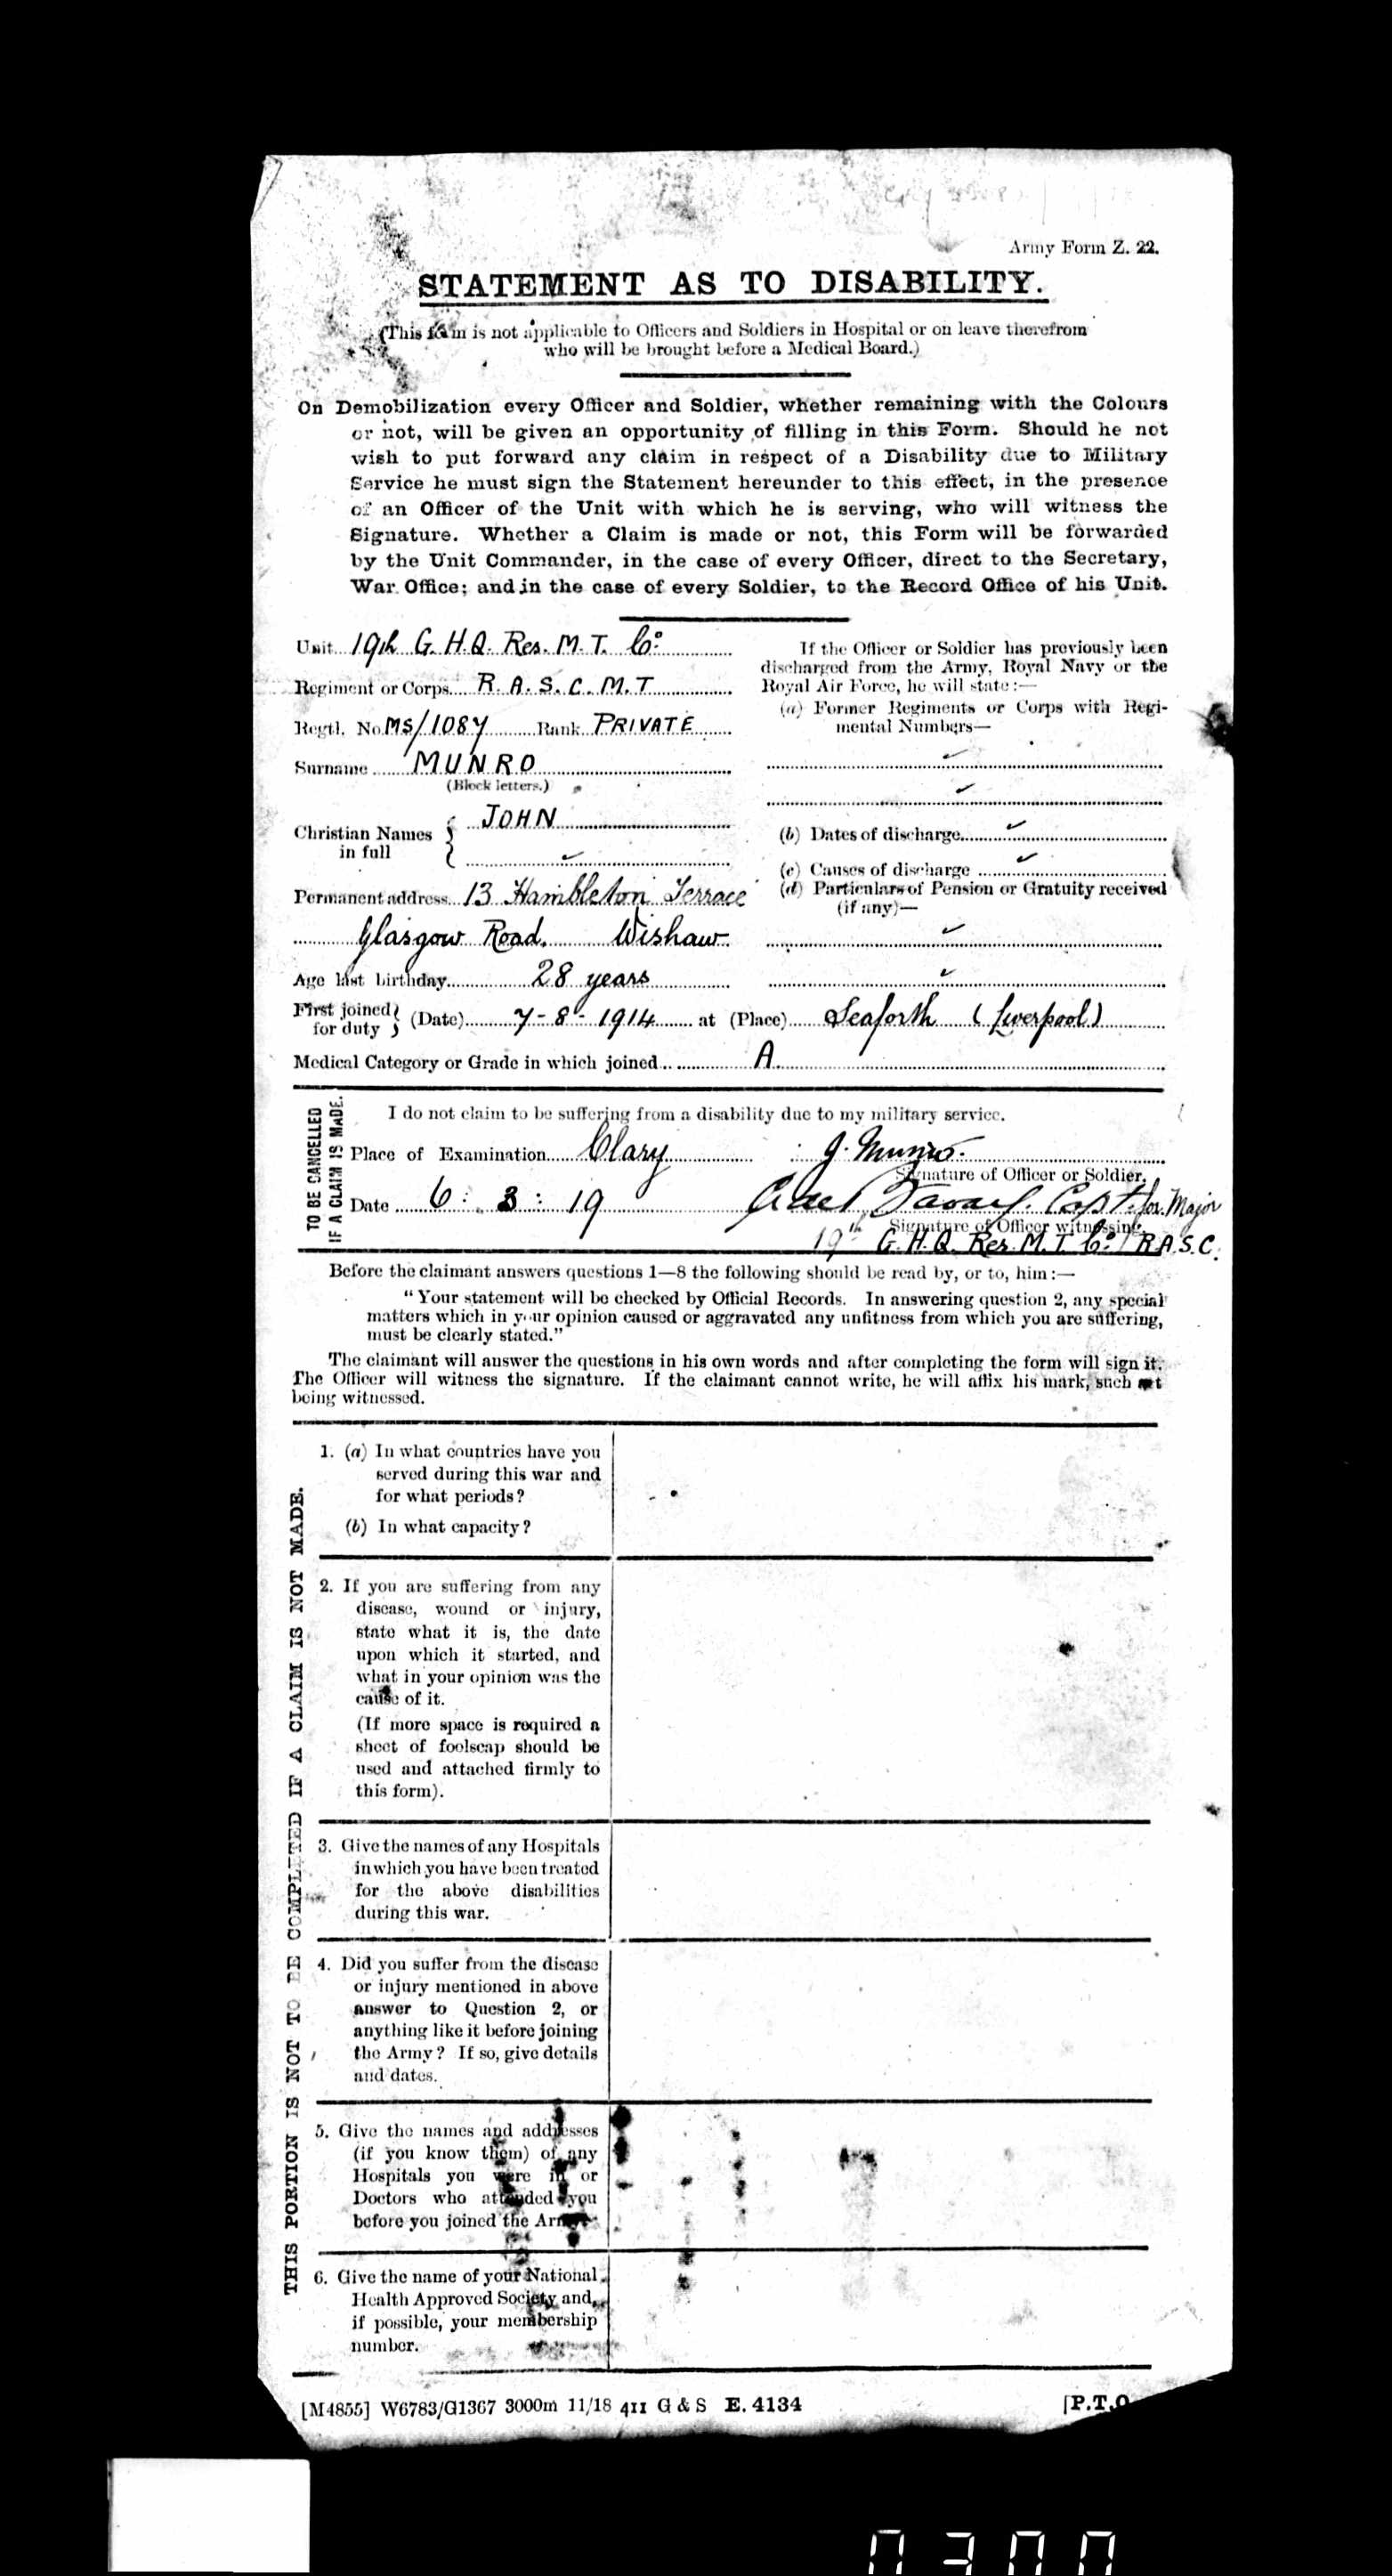 Army Form Z. 22.
STATEMENT AS TO DISABILITY.
(This form is not applicable to Officers and Soldiers in Hospital or on leave therefrom
who will be brought before a Medical Board.)
On Demobilization every Officer and Soldier, whether remaining with the Colours
or not, will be given an opportunity of filling in this Form. Should he not
wish to put forward any claim in respect of a Disability due to Military
Service he must sign the Statement hereunder to this effect, in the presence
of an Officer of the Unit with which he is serving, who will witness the
Signature. Whether a Claim is made or not, this Form will be forwarded
by the Unit Commander, in the case of every Officer, direct to the Secretary,
War Office; and in the case of every Soldier, to the Record Office of his Unit.
Unit 19th G.H.Q. Res. M.T. Co.
Regiment or Corps R.A.S.C. M.T
Regtl. No. MS/1087 Rank PRIVATE
Surname MUNRO
(Block letters.)
Christian Names in full JOHN
Permanent address 13 Hambleton Terrace
Glasgow Road. Wishaw.
Age last birthday 28 years
If the Officer or Soldier has previously been
discharged from the Army, Royal Navy or the
Royal Air Force, he will state:—
(a) Former Regiments or Corps with Regi-
mental Numbers—
(b) Dates of discharge
(c) Causes of discharge
(d) Particulars of Pension or Gratuity received
(if any)—
First joined for duty (Date) 7-8-1914 at (Place) Seaforth (Liverpool)
Medical Category or Grade in which joined A.
TO BE CANCELLED
IF A CLAIM IS MADE.
I do not claim to be suffering from a disability due to my military service.
Place of Examination Clary J. Munro.
Signature of Officer or Soldier.
Date 6: 3: 19 Capt. for Major
Signature of Officer witnessing.
19th G.H.Q. Res. M.T. Co. R.A.S.C.
Before the claimant answers questions 1—8 the following should be read by, or to, him:—
"Your statement will be checked by Official Records. In answering question 2, any special
matters which in your opinion caused or aggravated any unfitness from which you are suffering,
must be clearly stated."
The claimant will answer the questions in his own words and after completing the form will sign it.
The Officer will witness the signature. If the claimant cannot write, he will affix his mark, such act
being witnessed.
THIS PORTION IS NOT TO BE COMPLETED IF A CLAIM IS NOT MADE.
1. (a) In what countries have you
served during this war and
for what periods?
(b) In what capacity?
2. If you are suffering from any
disease, wound or injury,
state what it is, the date
upon which it started, and
what in your opinion was the
cause of it.
(If more space is required a
sheet of foolscap should be
used and attached firmly to
this form).
3. Give the names of any Hospitals
in which you have been treated
for the above disabilities
during this war.
4. Did you suffer from the disease
or injury mentioned in above
answer to Question 2, or
anything like it before joining
the Army? If so, give details
and dates.
5. Give the names and addresses
(if you know them) of any
Hospitals you were in or
Doctors who attended you
before you joined the Army.
6. Give the name of your National
Health Approved Society and,
if possible, your membership
number.
[M4855] W6783/G1367 3000m 11/18 411 G & S E. 4134 [P.T.O
0300